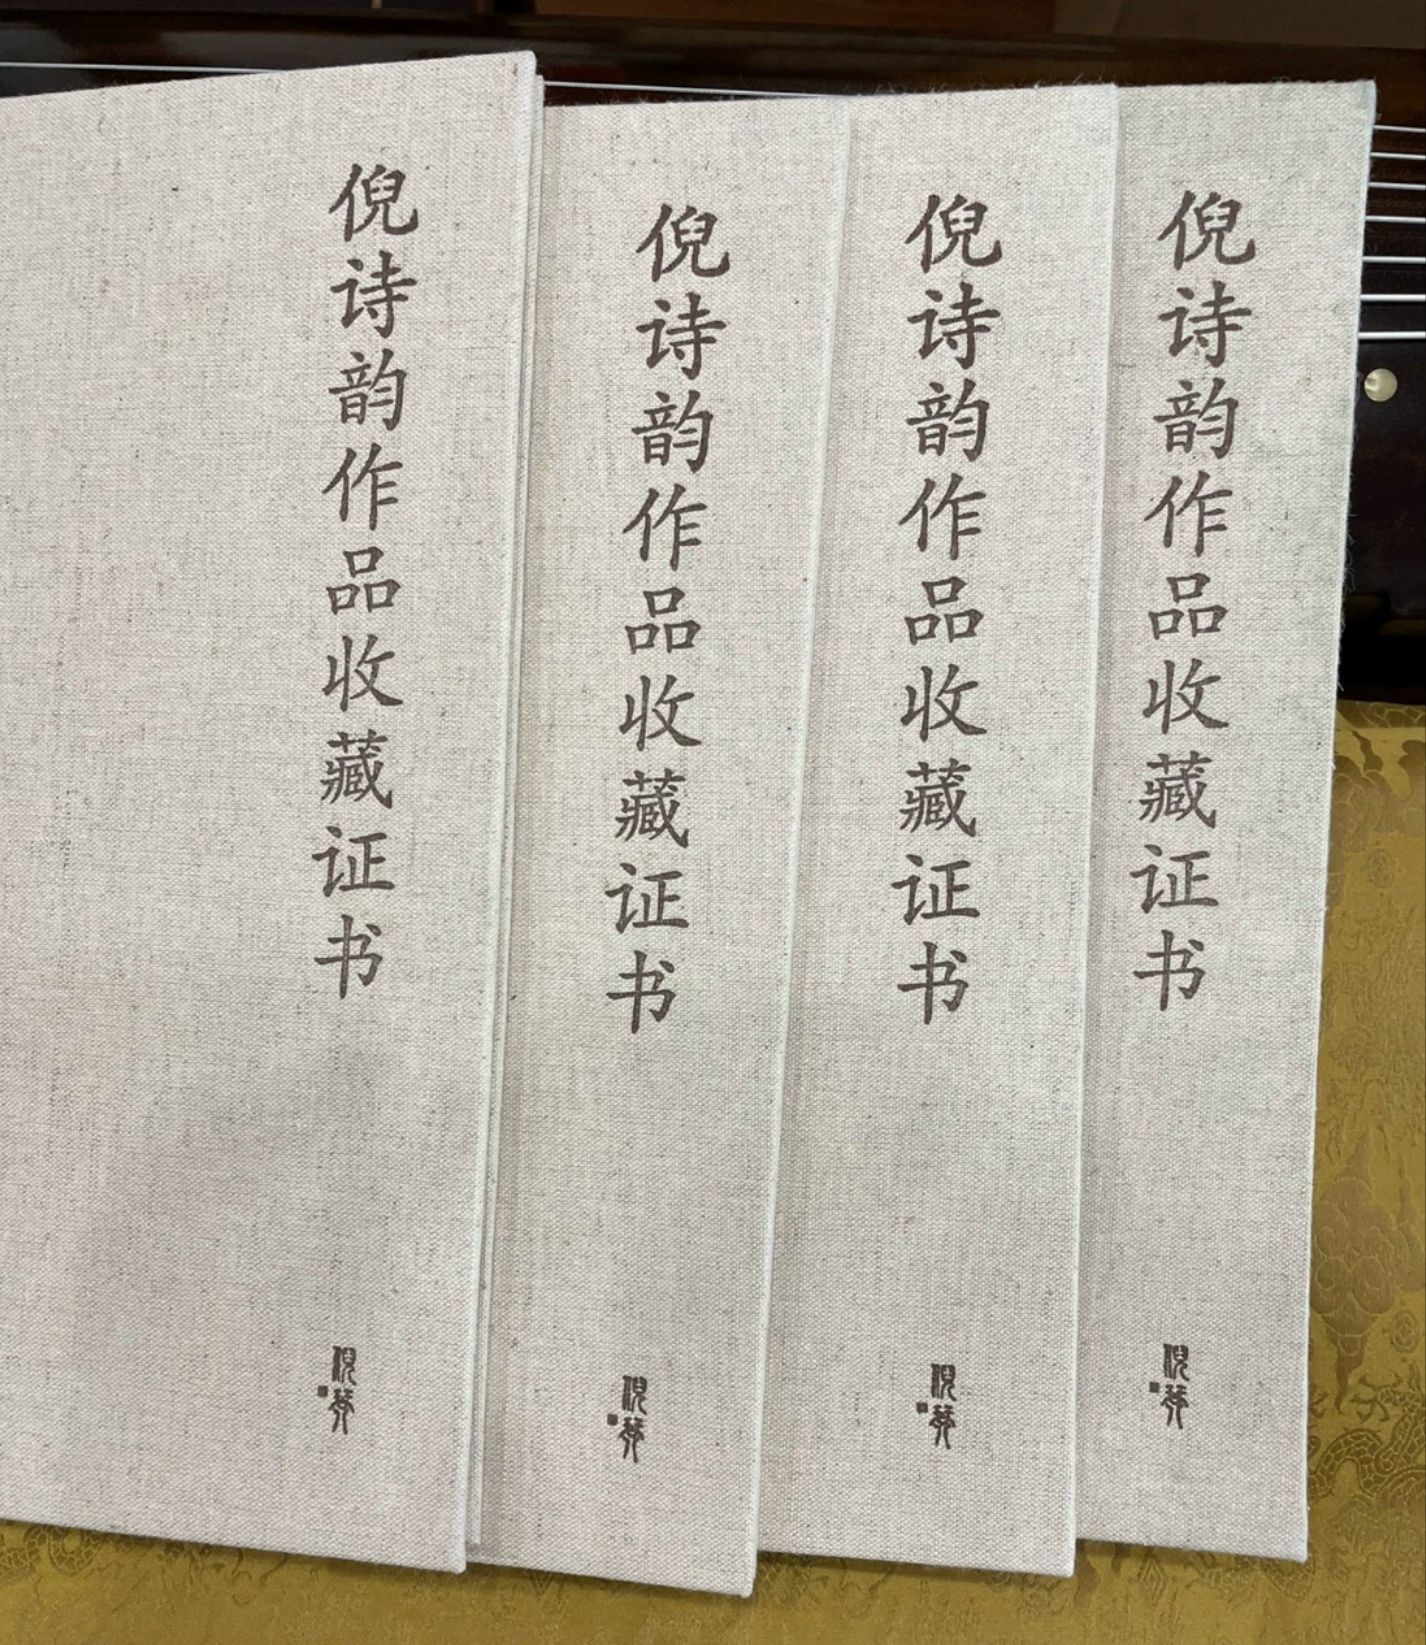 倪诗韵作品收藏证书
倪琴
倪诗韵作品收藏证书
倪琴
倪诗韵作品收藏证书
倪琴
倪诗韵作品收藏证书
倪琴